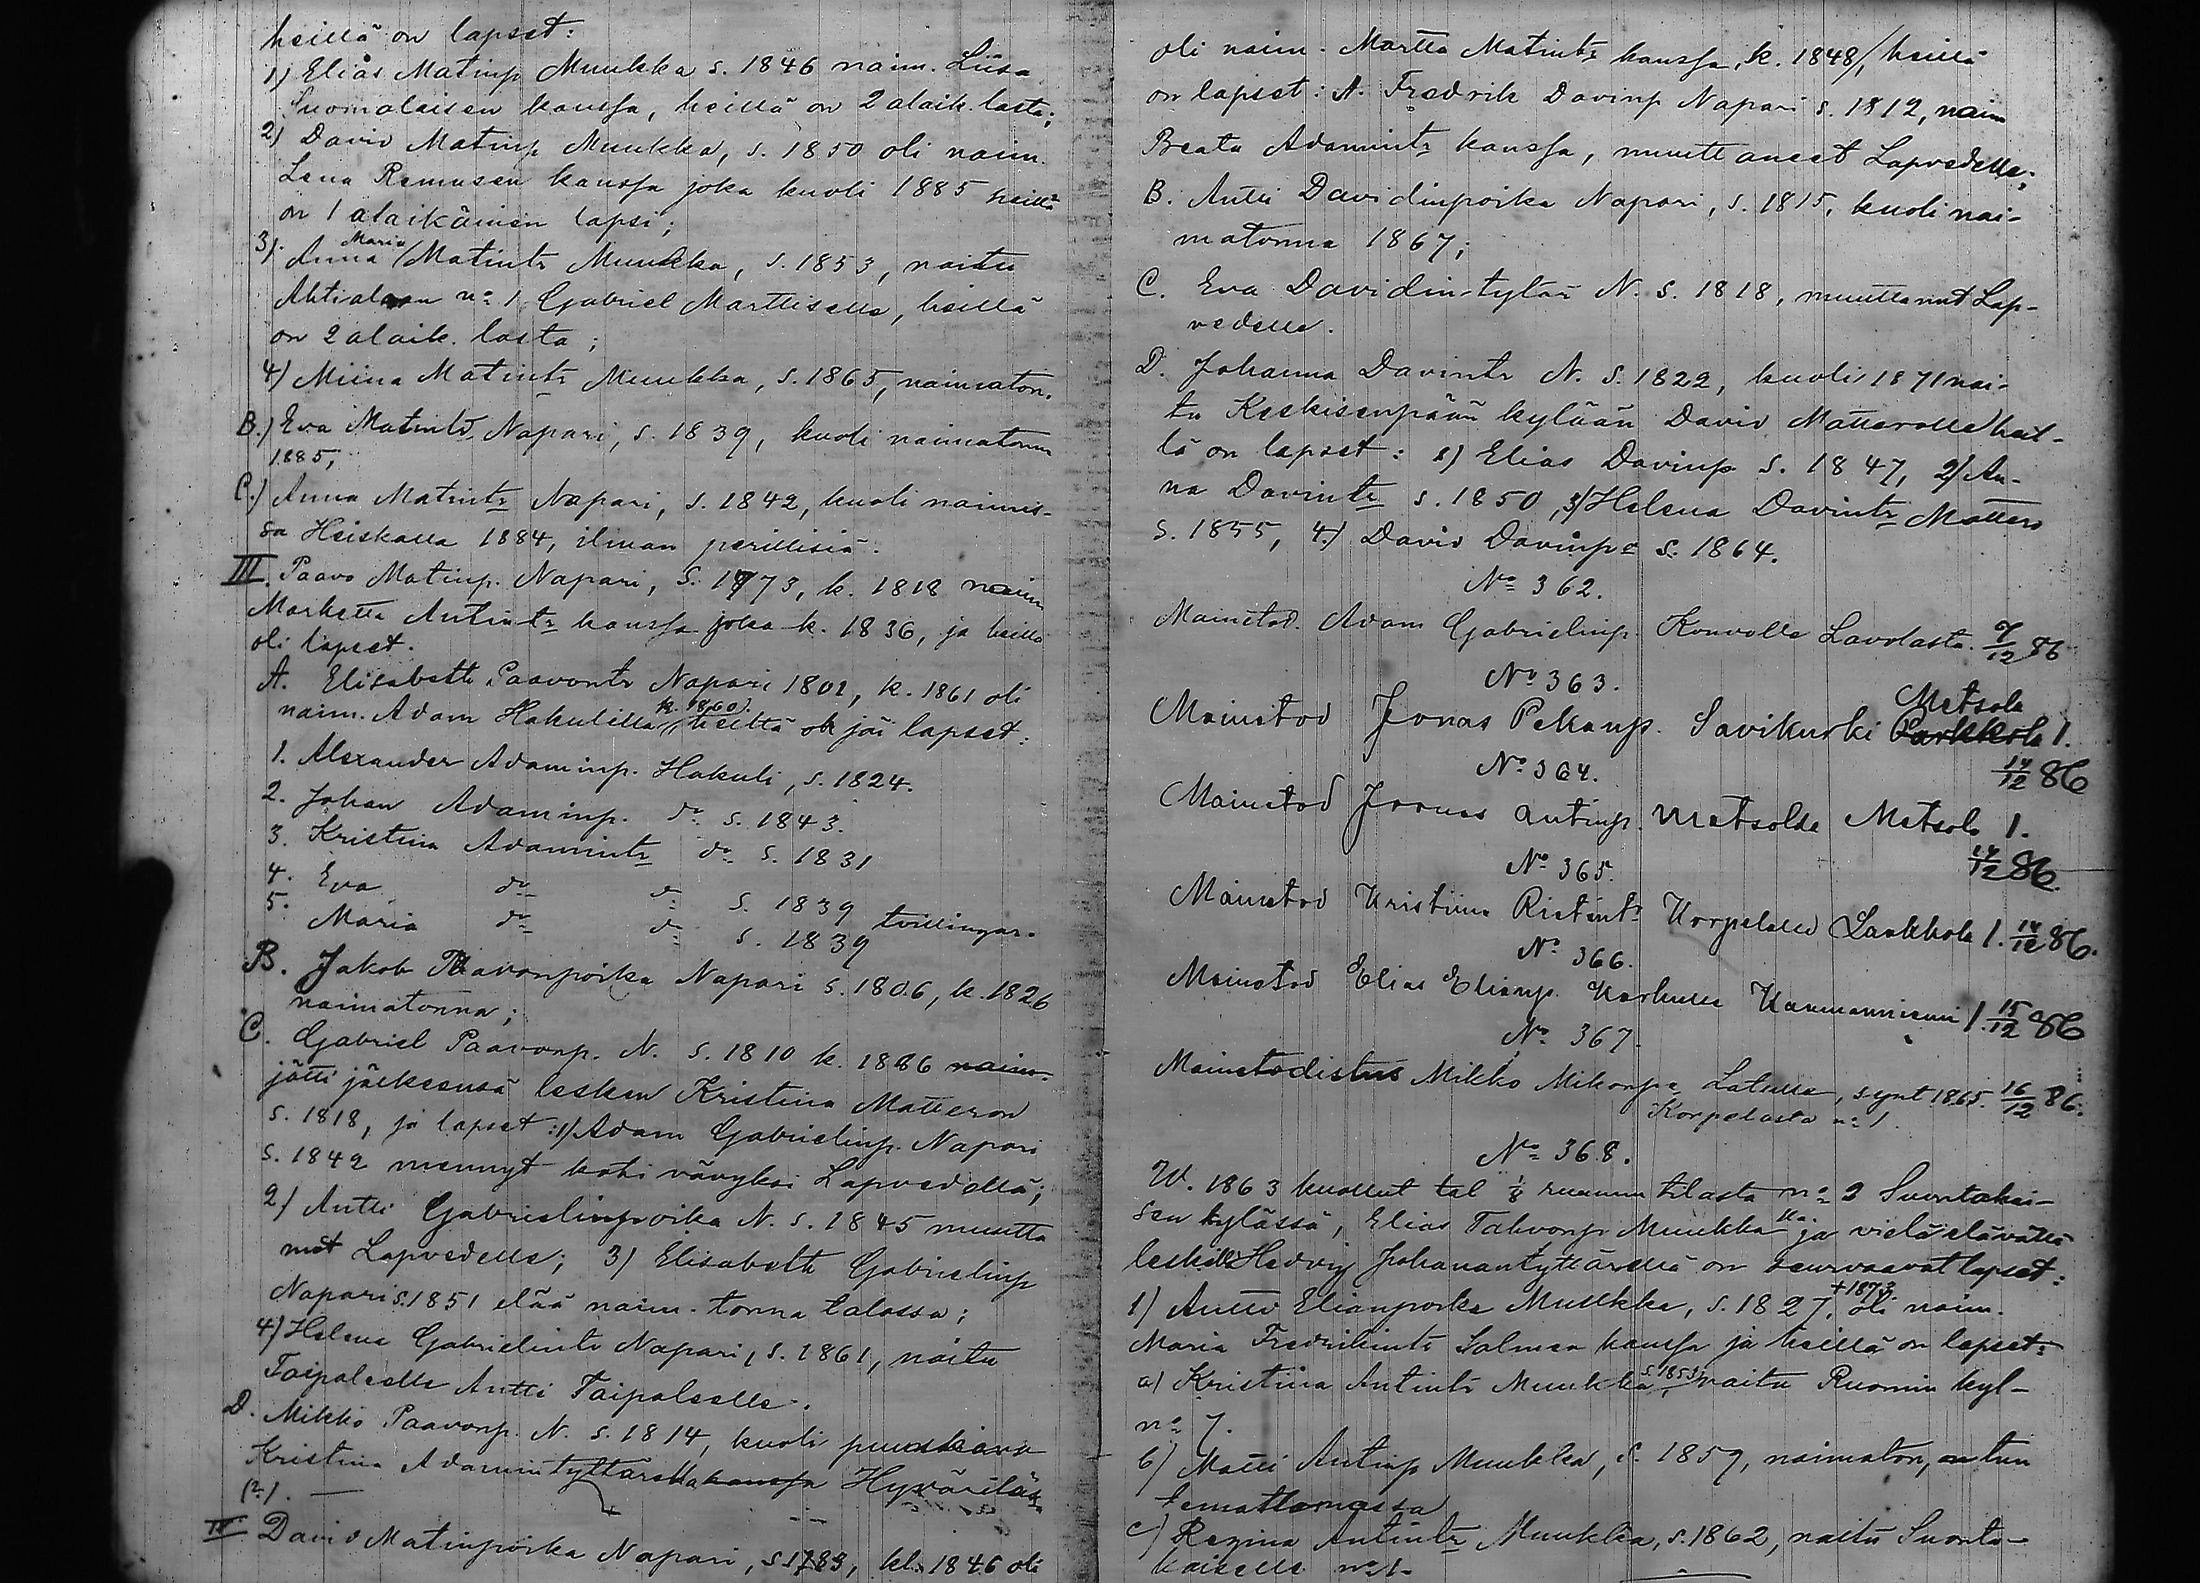 heillä on lapset:
1) Elias Matinp Muukka s. 1846 naim. Liisa
Suomalaisen kanssa, heillä on 2 alaik. lasta;
2) David Matinp Muukka, s. 1850 oli naim.
Lena Remusen kanssa joka kuoli 1885 heillä
on 1 alaikäinen lapsi;
3) Anna Maria Matintr Muukka, s. 1853, naitu
Ahtialaan no 1 Gabriel Marttiselle, heillä
on 2 alaik. lasta;
4) Miina Matintr Muukka, s. 1865, naimaton.
B.) Eva Matintr Napari, s. 1839, kuoli naimatonna
1885;
C.) Anna Matintr Napari, s. 1842, kuoli naimis-
sa Heiskalla 1884, ilman perillisiä.
III. Paavo Matinp. Napari, s. 1773, k. 1818 naim
Marketta Antintr kanssa joka k. 1836, ja heillä
oli lapset.
A. Elisabeth Paavontr Napari 1801, k. 1861 oli
naim. Adam Hakulilla k. 1860. heiltä jäi lapset:
1. Alexander Adaminp. Hakuli, s. 1824.
2. Johan Adaminp. do s. 1843.
3. Kristina Adamintr do s. 1831
4. Eva do do s. 1839
5. Maria do do s. 1839 tvillingar.
B. Jakob Paavonpoika Napari s. 1806, k. 1826
naimatonna;
C. Gabriel Paavonp. N. s. 1810 k. 1886 naim.
jätti jälkeensä lesken Kristina Materon
s. 1818, ja lapset: 1) Adam Gabrielinp. Napari
s. 1842 mennyt koti vävyksi Lapvedellä;
2) Antti Gabrielinpoika N. s. 1845 muutta
nut Lapvedelle; 3) Elisabeth Gabrielinp
Napari s. 1851 elää naim-tonna talossa;
4) Helena Gabrielintr Napari, s. 1861, naitu
Taipalselle Antti Taipalselle.
D. Mikko Paavonp. N. s. 1814, kuoli
Kristina Adamintyttärellä kanssa Hyvärilän
IV David Matinpoika Napari, s 1783, kl. 1846 oli
oli naim. Martta Matintr kanssa, k. 1848/, heillä
on lapset: A. Fredrik Davinp Napari s. 1812, naim
Beata Adamintr kanssa, muuttaneet Lapvedelle;
B. Antti Davidinpoika Napari, s. 1815, kuoli nai-
matonna 1867;
C. Eva Davidin-tytär N. s. 1818, muuttanut Lap-
vedelle.
D. Johanna Davintr N. s. 1822, kuoli 1871 nai-
tu Keskisenpään kylään David Matterolle heil-
lä on lapset: 1) Elias Davinp s. 1847, 2) An-
na Davintr s. 1850, 3) Helena Davintr Mattero
s. 1855, 4.) David Davinp s. 1864.
No 362.
Mainetod. Adam Gabrielinp. Konvolle Lavolasta. 7/12 86
No 363.
Mainetod Jonas Pekanp. Savikurki Parkkola Metsola 1.
14/12 86
No 364.
Mainetod Joonas Antinp. Metsolle Metsola 1.
14/12 86.
No 365.
Mainetod Kristiina Ristint. Korpelalle Laukkola 1. 14/12 86.
No 366.
Mainetod Elias Elianp. Karhulle Kaunanniemi 1. 15/12 86
No 367.
Mainetodistus Mikko Mikonpa Latulle, synt 1865. 16/12 86.
Korpelasta no 1.
No 368.
W. 1863 kuollut tal 1/8 ruunun tilasta no 2 Suontakai-
sen kylässä, Elias Tahvonp Muukkalla ja vielä elävällä
leskellä Hedvig Johanantyttärellä on seuraavat lapset:
1) Antti Elianpoika Muukka, s. 1827, +1873 oli naim.
Maria Fredrikintr Salmen kanssa ja heillä on lapset:
a) Kristina Antintr Muukka s. 1853, naitu Ruomin kyl-
no 7.
b) Matti Antinp Muukka, s. 1859, naimaton, on tun
temattomassa
c) Regina Antintr Muukka, s. 1862, naitu Suonta-
kaiselle no 1.